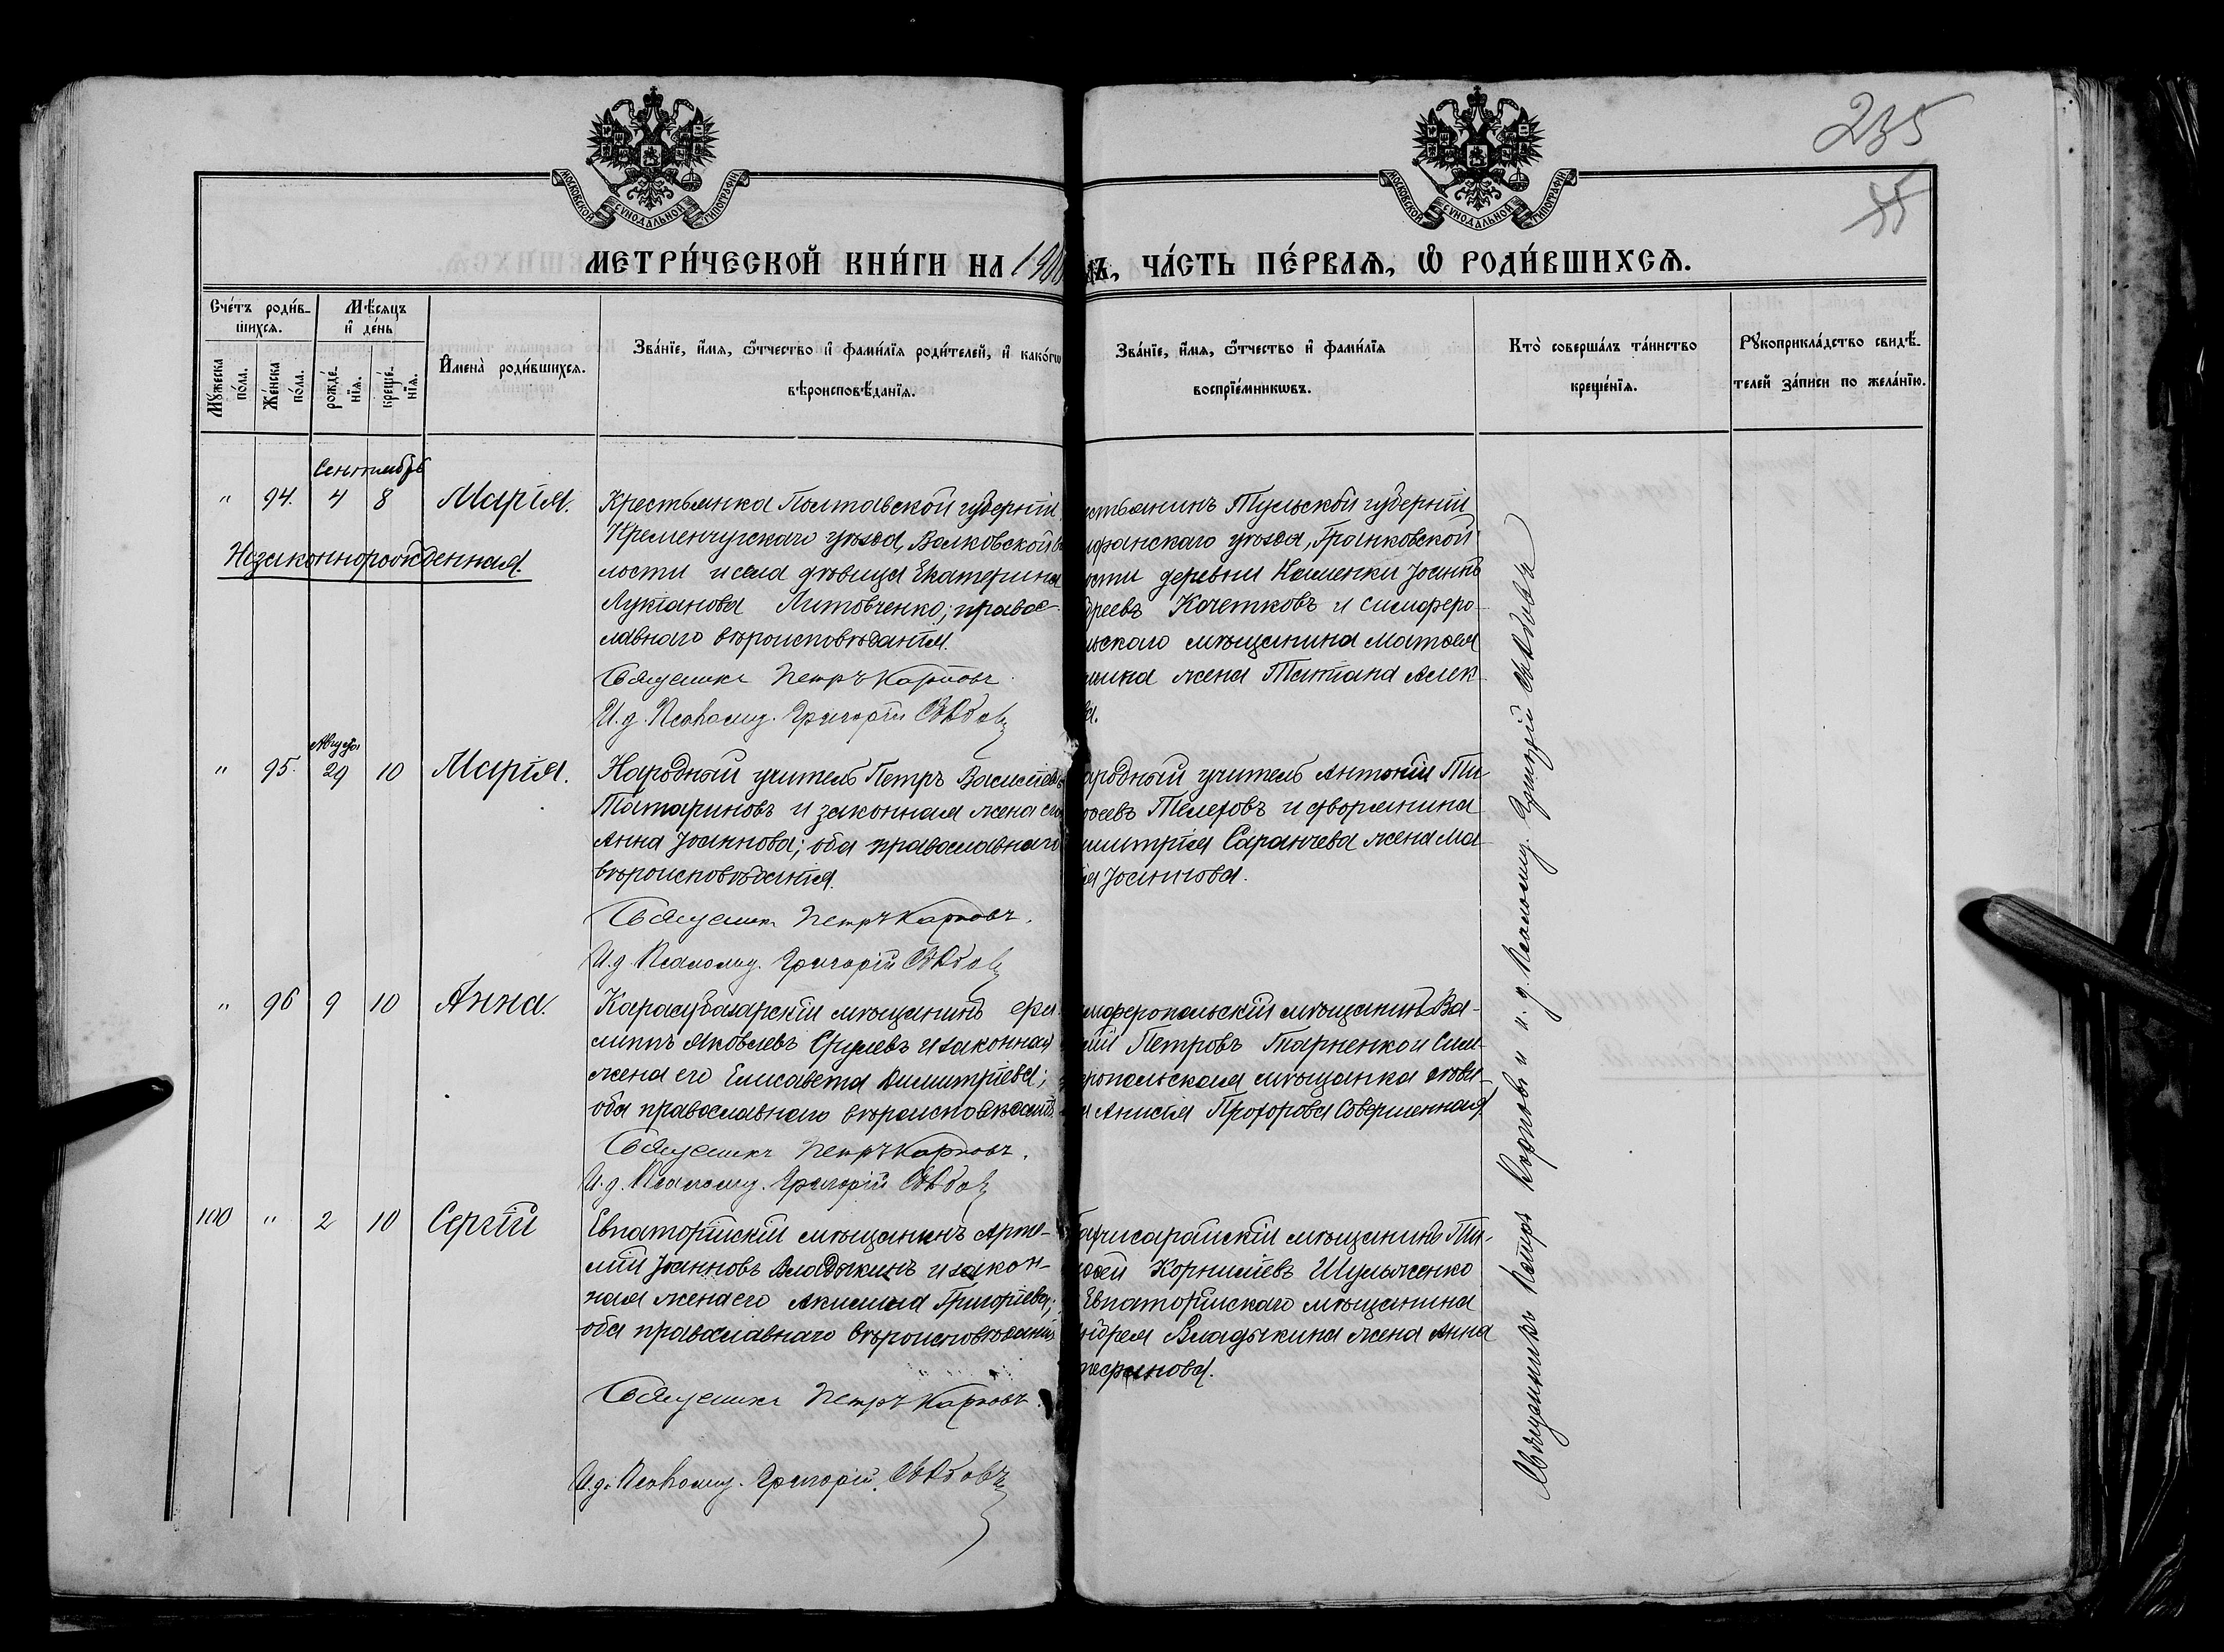 235
55
МОСКОВСКОЙ СѴНОДАЛЬНОЙ ТИПОГРАФІИ
МОСКОВСКОЙ СѴНОДАЛЬНОЙ ТИПОГРАФІИ
МЕТРИ́ЧЕСКОЙ КНИ́ГИ НА 1900
ДЪ, ЧА́СТЬ ПЕ́РВАѦ, Ѡ҆ РОДИ́ВШИХСѦ.
Сче́тъ роди́в-
шихсѧ.
Мѣ́сѧцъ
и҆ де́нь
Мꙋ́жеска по́ла.
Же́нска по́ла.
рожде́нїѧ.
креще́нїѧ.
И҆мена̀ роди́вшихсѧ.
Зва́нїе, и҆́мѧ, ѻ҆́тчество и҆ фами́лїѧ роди́телей, и҆ како́гѡ
вѣроисповѣ́данїѧ.
Зва́нїе, и҆́мѧ, ѻ҆́тчество и҆ фами́лїѧ
воспрїе́мникѡвъ.
Кто̀ соверша́лъ та́инство
креще́нїѧ.
Рꙋкоприкла́дство свидѣ́-
телей за́писи по жела́нїю.
Сентябрь
" 94. 4 8 Марія.
Незаконнорожденная
Крестьянка Полтавской губерніи
Кременчугскаго уѣзда, Волковской во
лости и села дѣвица Екатерина
Лукіанова Литовченко; право-
лавнаго вѣроисповѣданія.
Священникъ Петръ Карповъ
И. д. Псаломщ. Григорій
естьянинъ Тульской губерніи
ифанскаго уѣзда, Гранковской
ости деревни Каменки Іоаннъ
дреевъ Кочетковъ и симферо-
льскаго мѣщанина Матѳея
жена Татіана Алек-
ва.
Августа
" 95. 29 10 Марія.
Народный учитель Петръ Василіевъ
Татариновъ и законная жена его
Анна Іоаннова; оба православнаго
вѣроисповѣданія.
Священникъ Петръ Карповъ.
И. д. Псаломщ. Григорій
ародный учитель Антоній Ти-
оѳеевъ Телеховъ и дворянина
имитрія Саранчева жена Ма-
ія Іоаннова.
" 96 9 10 Анна.
Карасубазарскій мѣщанинъ Фи-
липпъ Яковлевъ и законная
жена его Елисавета Димитріева;
оба православнаго вѣроисповѣданія.
Священникъ Петръ Карповъ.
И. д. Псаломщ. Григорій
имферопольскій мѣщанинъ Ва-
лій Петровъ Тарненко и Сим-
еропольская мѣщанка дѣви-
а Анисія Прохорова Совершенная
100 " 2 10 Сергій
Евпаторійскій мѣщанинъ Арте-
мій Іоанновъ Владыкинъ и закон-
ная жена его Акилина Григоріева;
оба православнаго вѣроисповѣданія
Священникъ Петръ Карповъ.
И. д. Псаломщ. Григорій
ахчисарайскій мѣщанинъ Ти-
оѳей Корниліевъ Шульженко
Евпаторійскаго мѣщанина
ндрея Владыкина жена Анна
тефанова.
Священникъ Петръ Карповъ и и. д. Псаломщ. Григорій